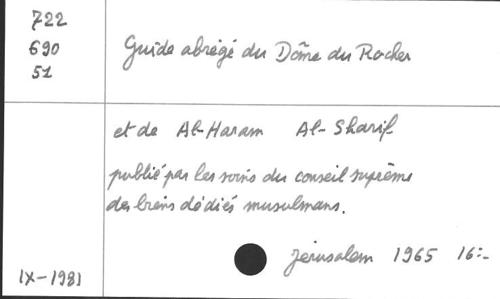 722
690
51
Guide abrégé du Dôme du Rocher
et de Al-Haram Al-Sharif
publié par les soins du conseil suprême
des biens dédiés musulmans.
Jérusalem 1965 16:-
IX-1981